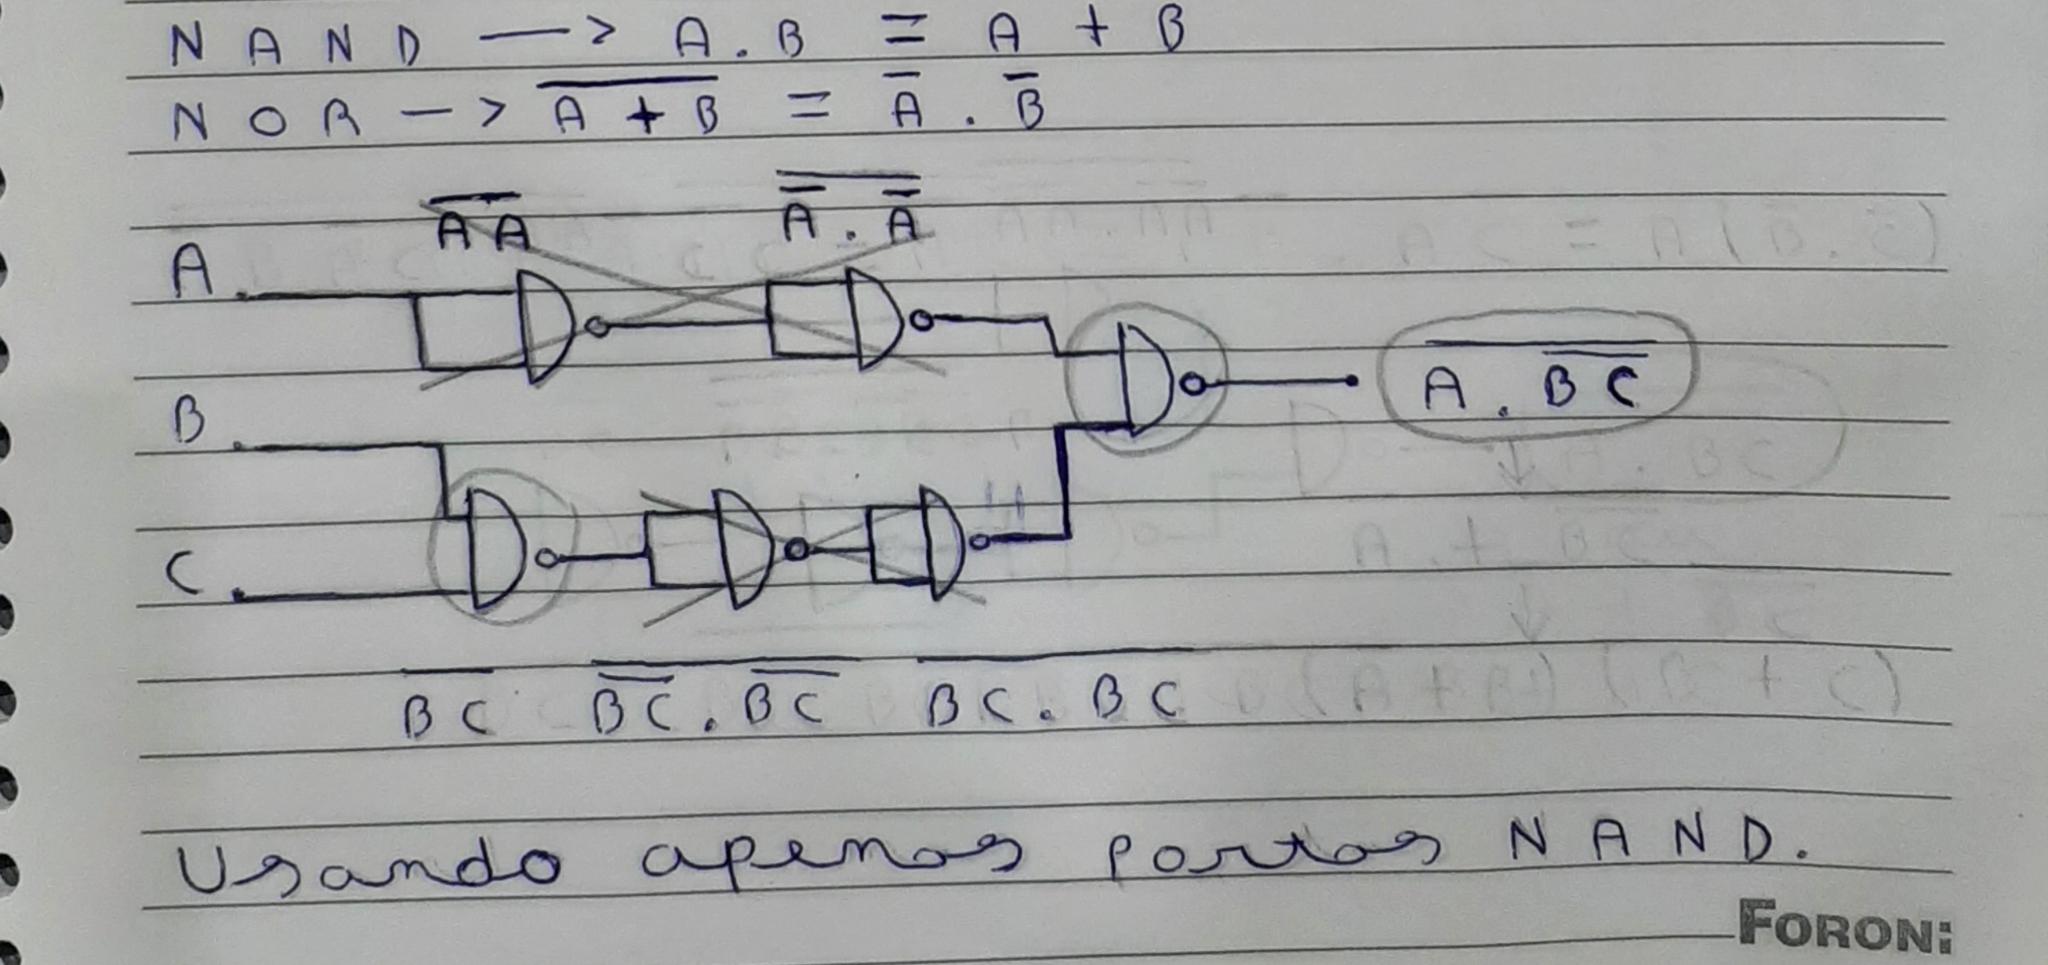 NAND —> A.B = A + B
NOR —> A̅ ̅+̅ ̅B̅ = A̅ . B̅
A̅A̅ A̿.̿A̿
A.
A . B̅C̅
B.
C.
B̅C̅ B̅C̅.B̅C̅ B̅C̅.̅B̅C̅
Usando apenas portas NAND.
FORONi